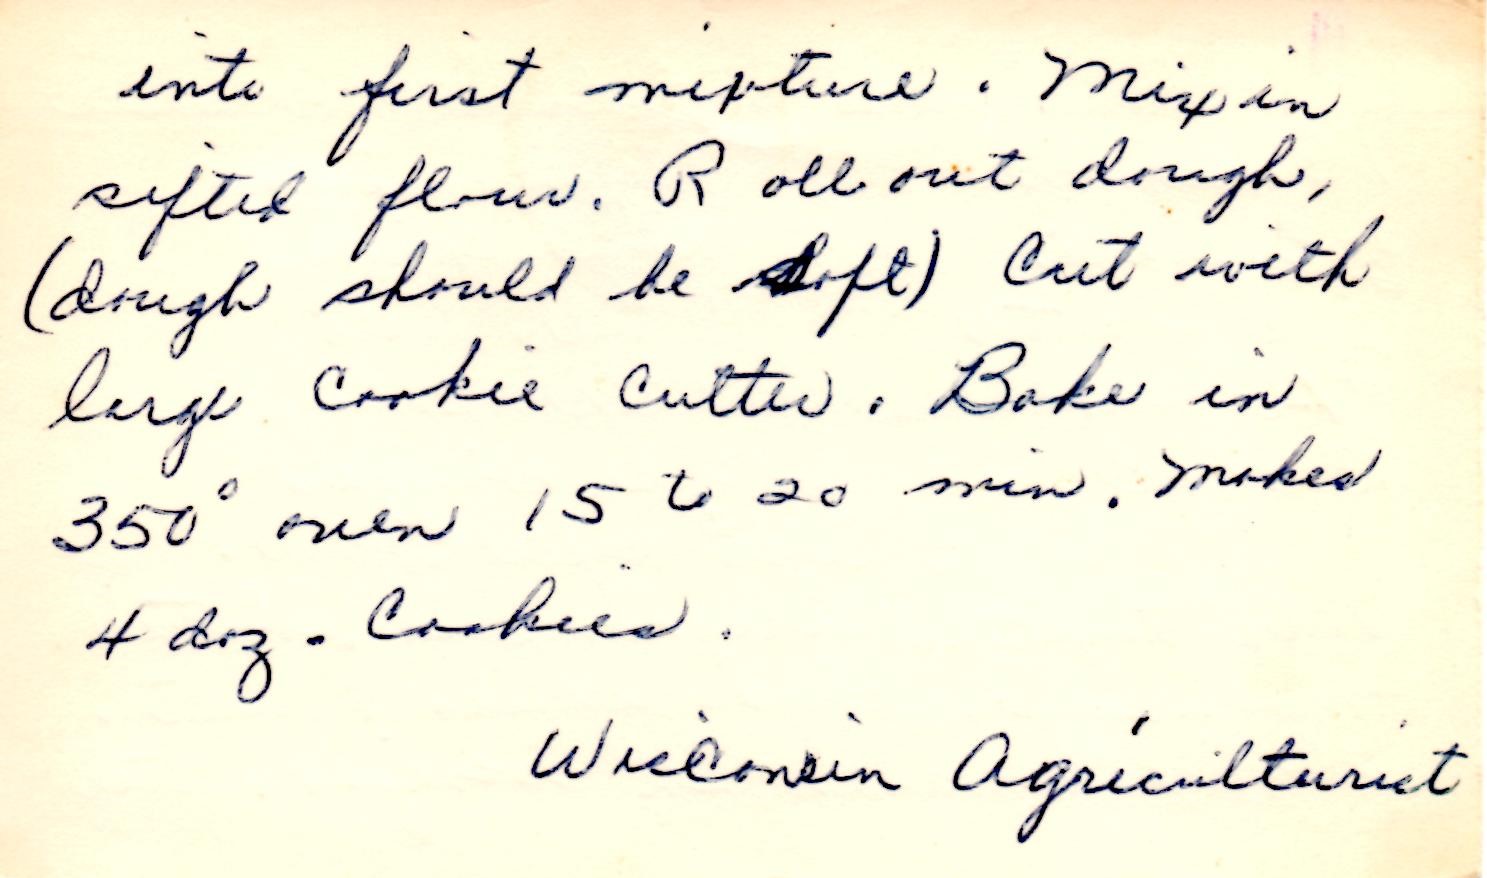 into first mixture. Mix in
sifted flour. Roll out dough,
(dough should be soft) Cut with
large Cookie Cutter. Bake in
350° oven 15 to 20 min. Makes
4 doz. Cookies.
Wisconsin Agriculturist